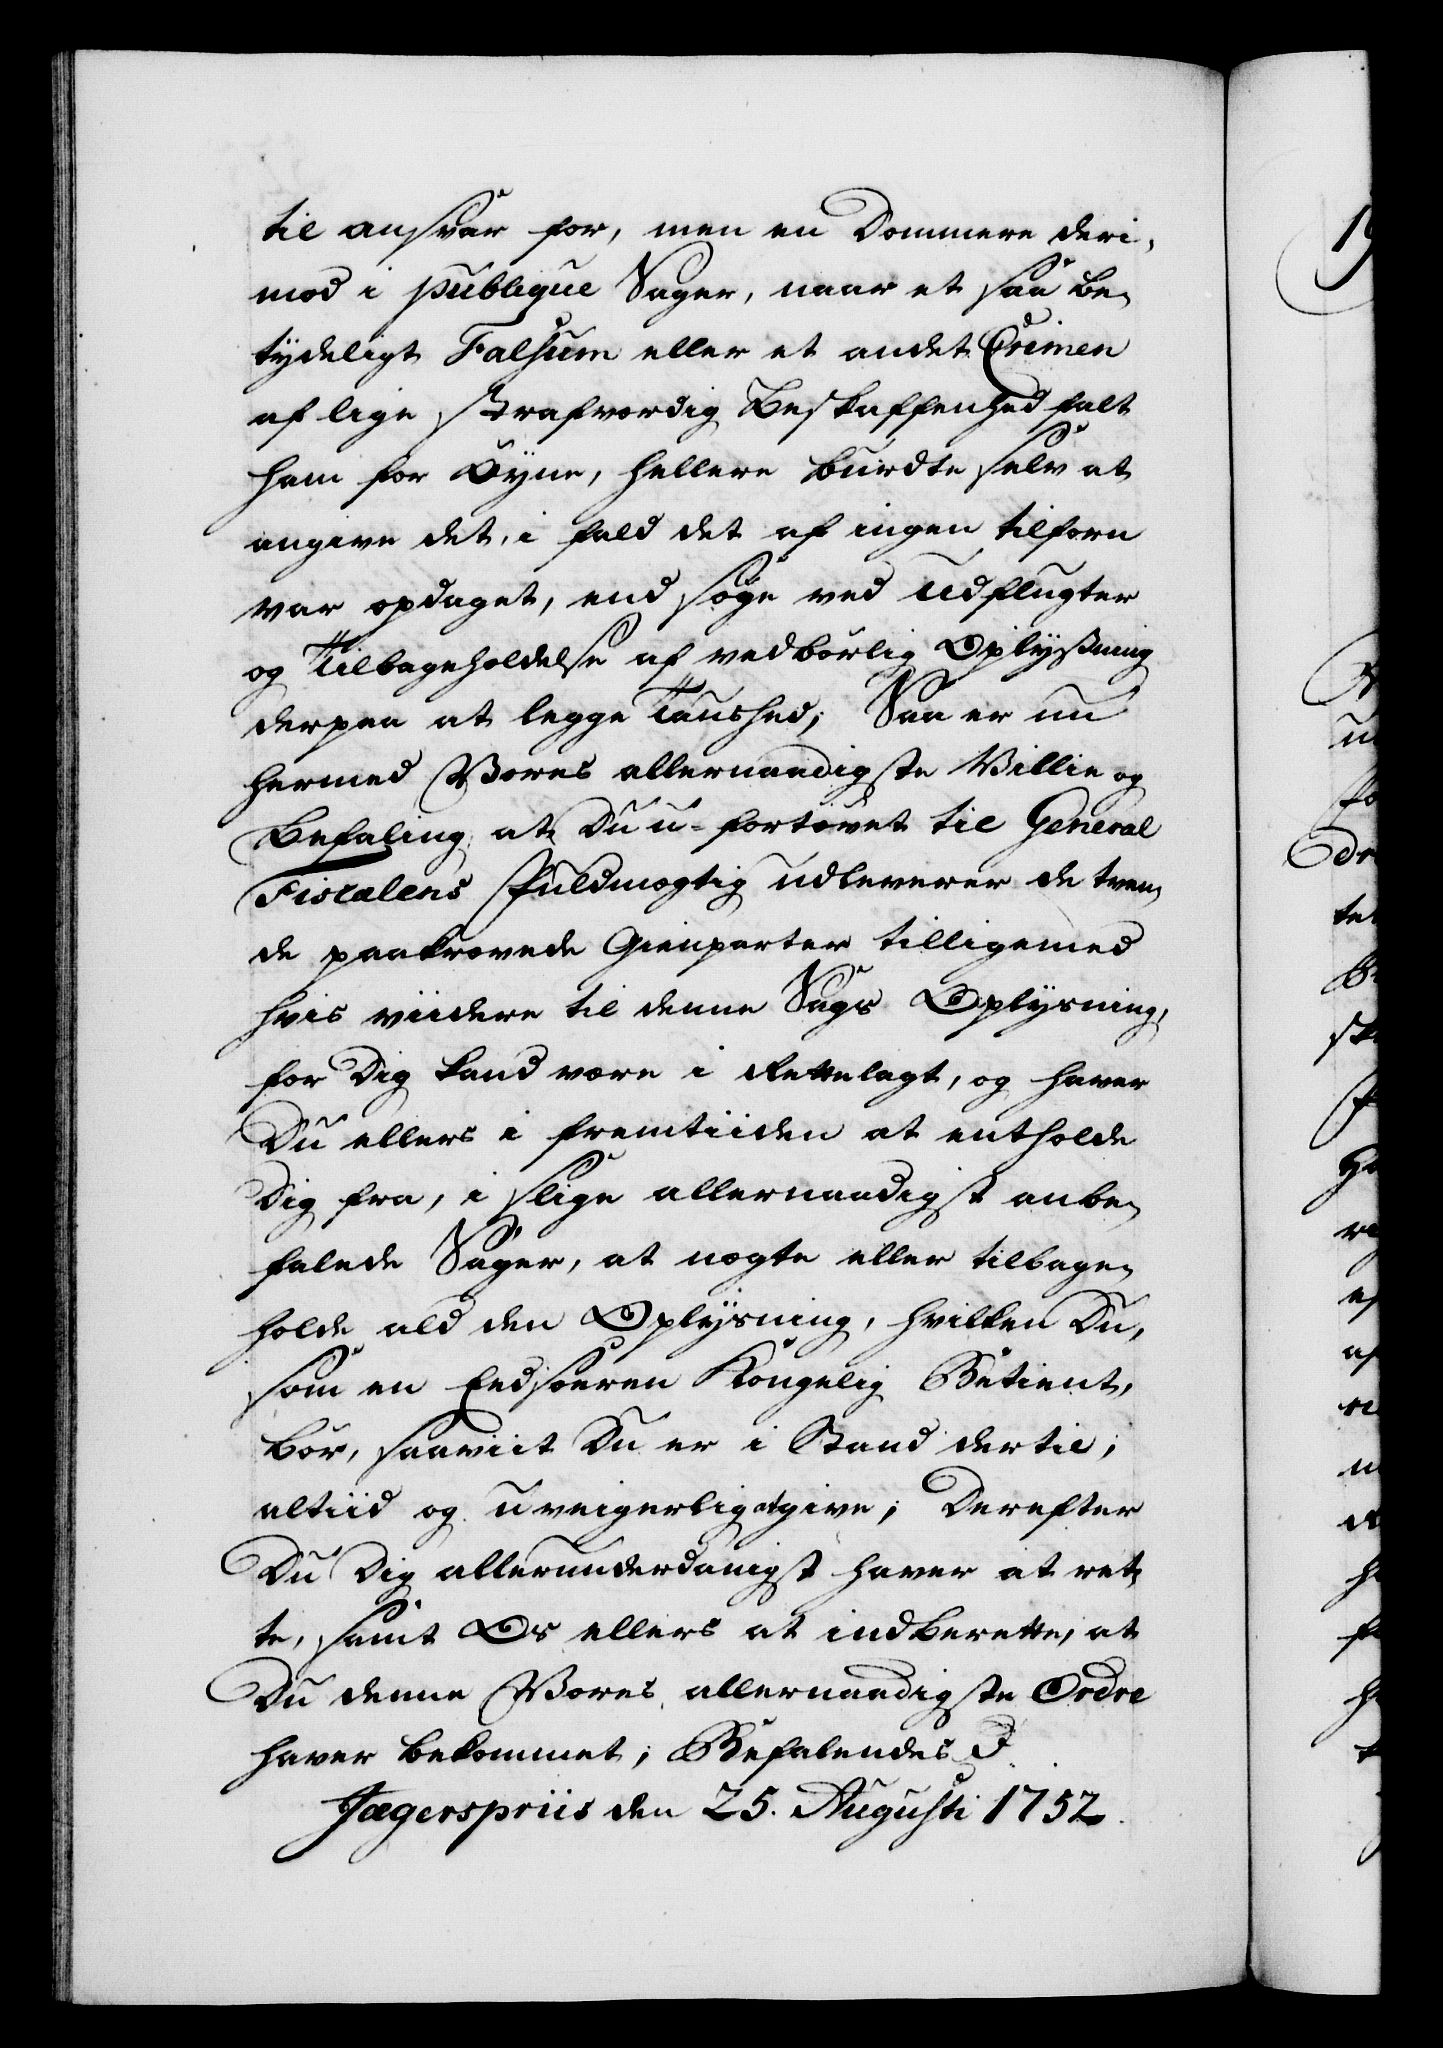 til ansvar for, men en Dommere deri-
mod i publique Sager, naar et saa be-
tydeligt Falsum eller et andet Crimen
af lige strafværdig Beskaffenhed falt
ham for Øyne, hellere burdte selv at
angive det, i fald det af ingen tilforn
var opdaget, end søge ved Udflugter
og Tilbageholdelse af vedbørlig Oplysning
derpaa at legge Taushed; Saa er nu
hermed Vores allernaadigste Villie og
Befaling, at Du u-fortøvet til General
Fiscalens Fuldmægtig udleverer de tven-
de paakrævede Gienparter tilligemed
hvis viidere til denne Sags Oplysning,
for Dig kand være i Rettelagt, og haver
Du ellers i fremtiiden at entholde
Dig fra, i slige allernaadigst anbe-
falede Sager, at nægte eller tilbage-
holde ald den Oplysning, hvilken Du,
som en Eedsoren Kongelig Betient,
bør, saaviit Du er i Stand dertil,
altiid og uveigerlig at give; Derefter
Du Dig allerunderdanigst haver at ret-
te, samt Os ellers at indberette, at
Du denne Vores allernaadigste Ordre
haver bekommet; Befalendes
Jægerspriis den 25. Augusti 1752.